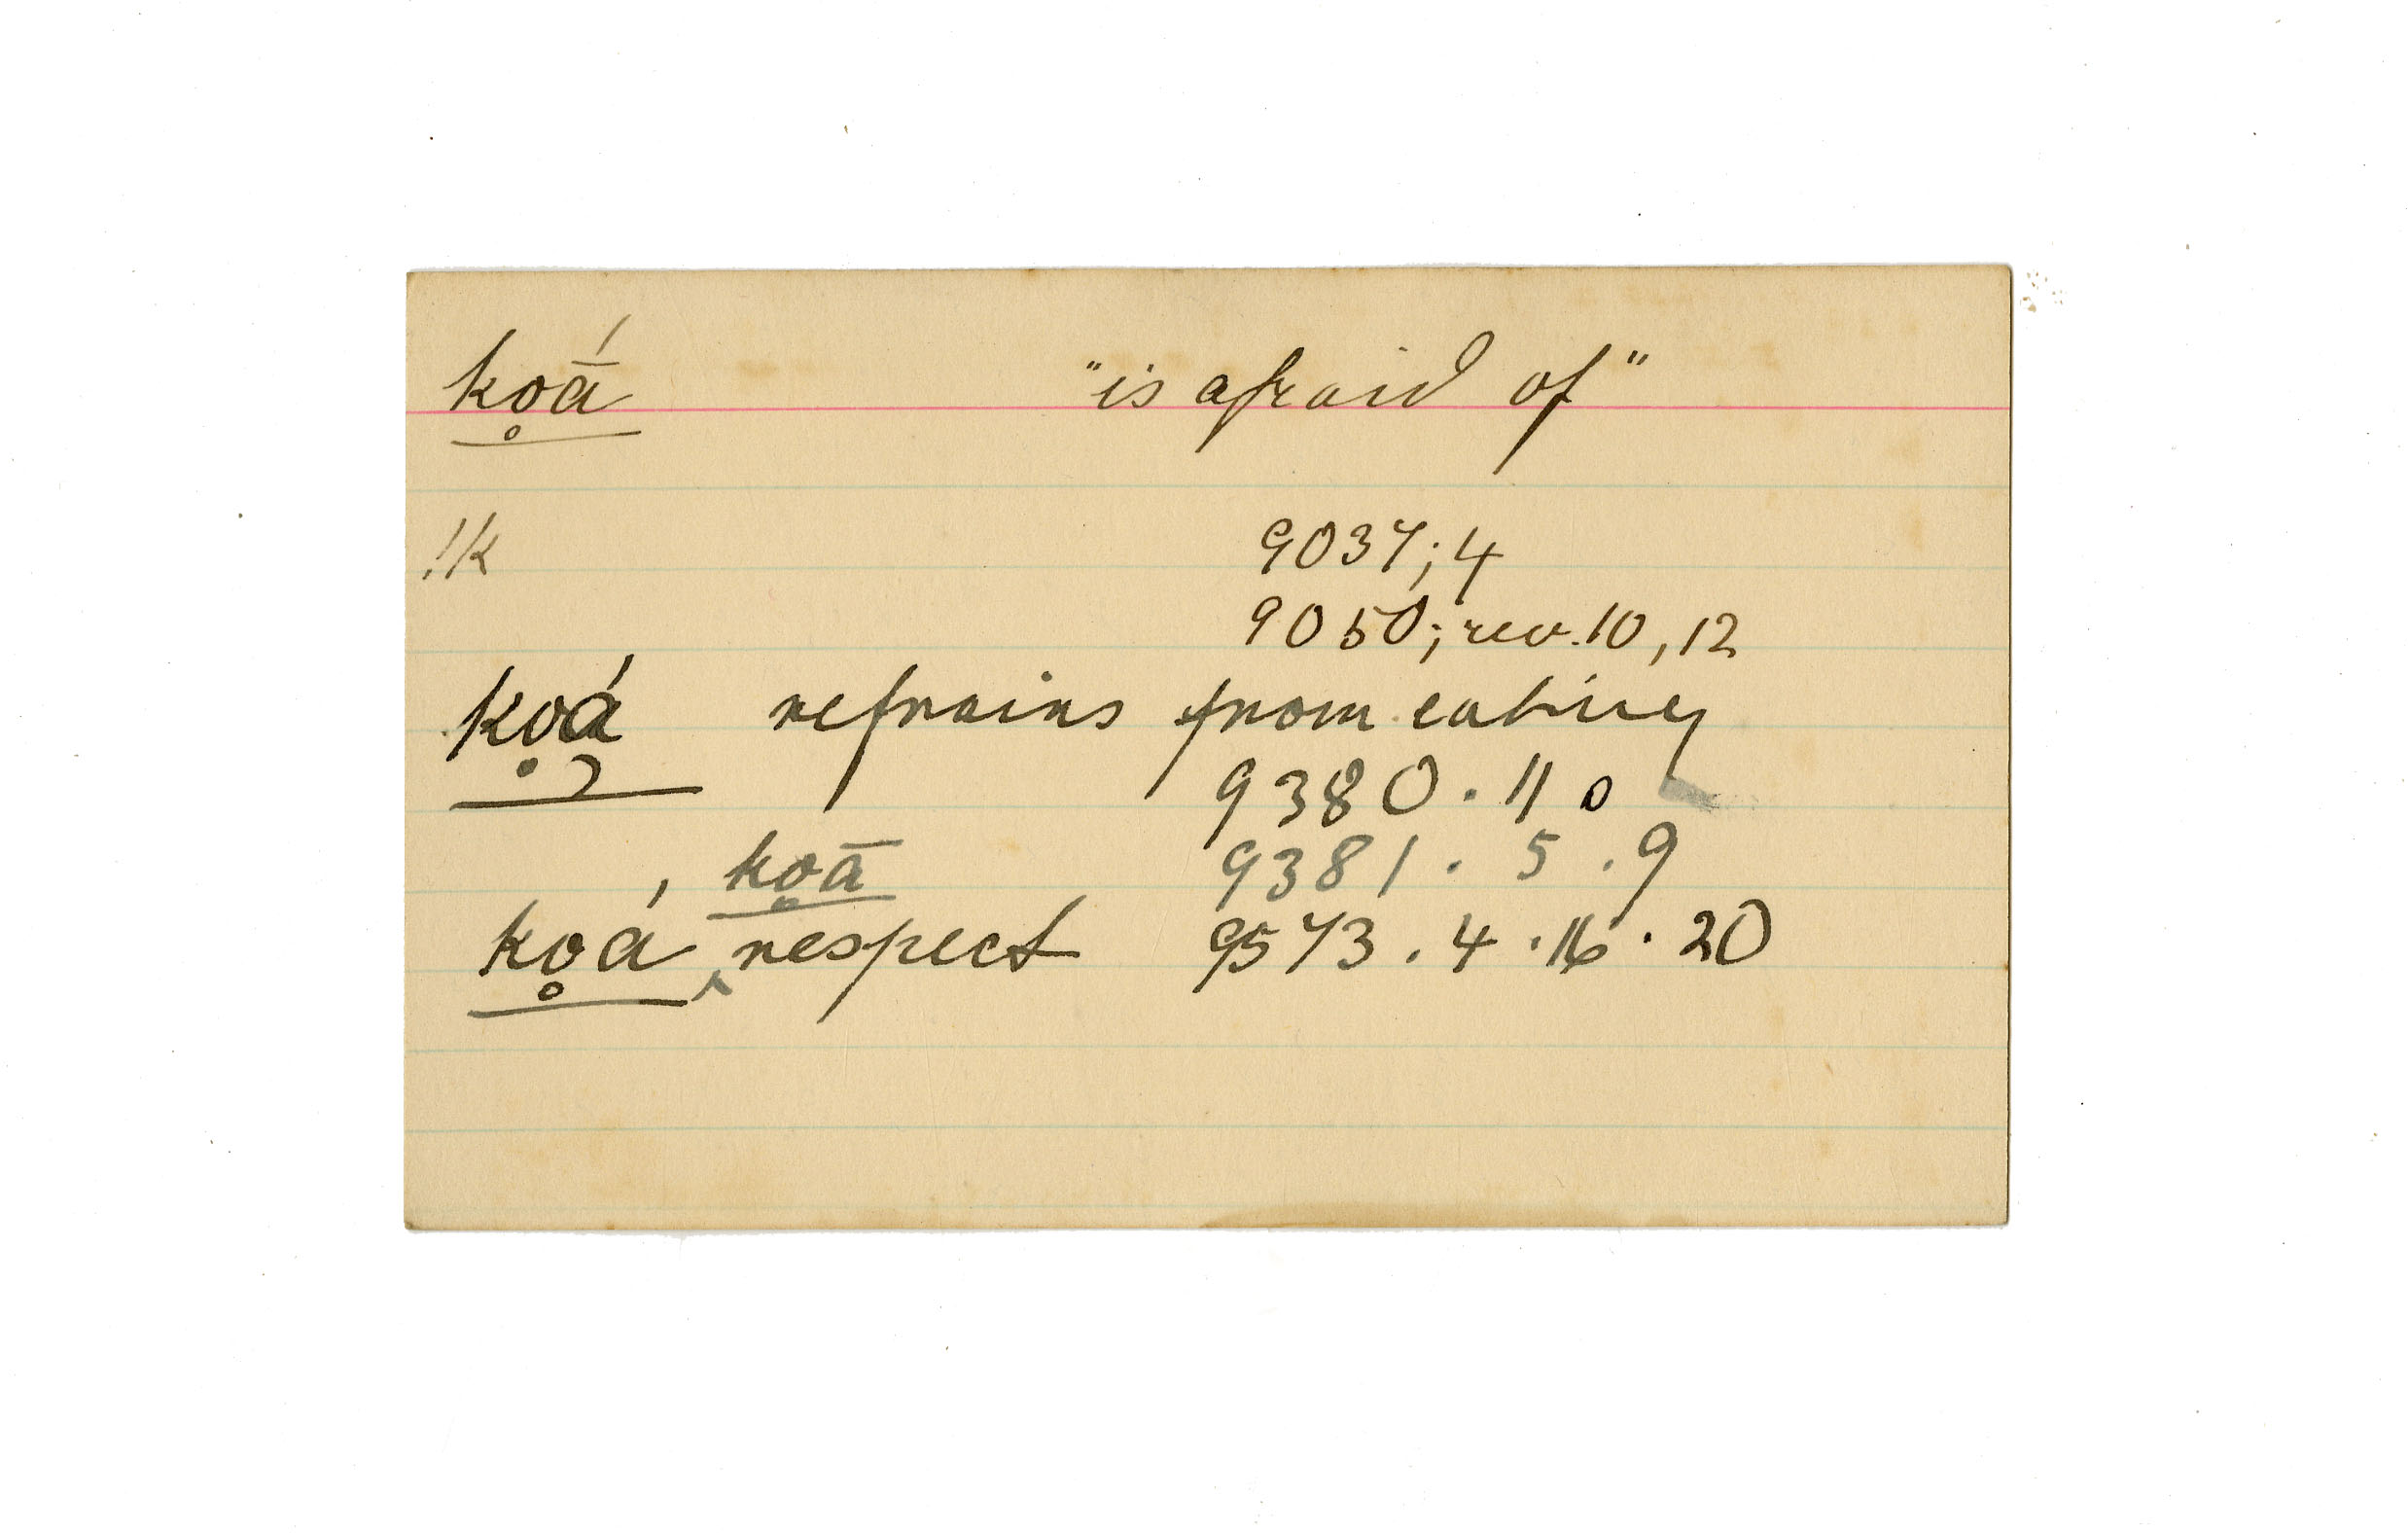 ko̥ā́ "is afraid of"
!k 9037; 4
9050; rev. 10, 12
ko̥á̢ refrains from eating
9380 . 11 0
ko̥ā 9381 . 5 . 9
ko̥á ‸ respect 9573 . 4 . 16 . 20